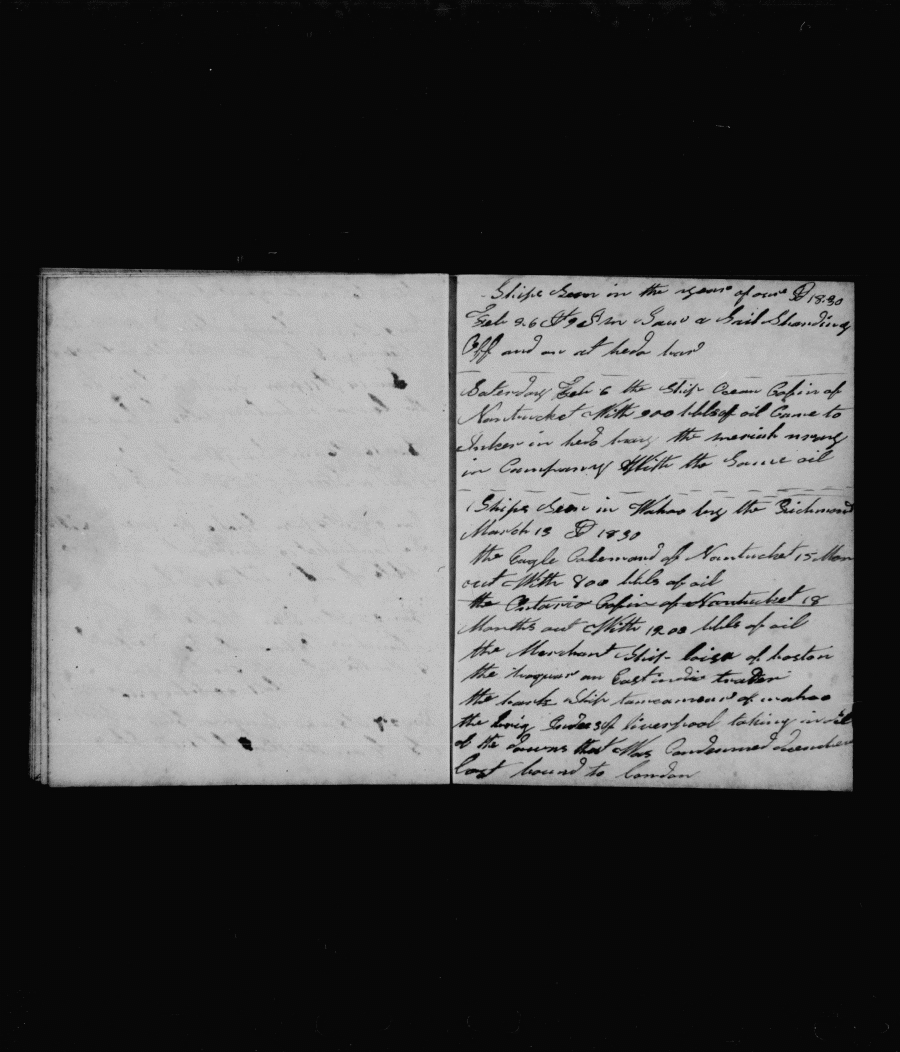 Ships Seen in the year of our D 1830
Feb 26 P 9 Saw a Sail Standing
Off and on at head
Saterday Feb 6 the Ship Ocean Cofin of
Nantucket With 900 bbls of oil Came to
Anker in bay the
in Company With the Same oil
Ships Seen in Wahoo by the Richmond
March 13 D 1830
the Eagle of Nantucket 15 Mon
out With 800 bbls of oil
the Ontario Cofin of Nantucket 18
Months out With 1200 bbls of oil
the Merchant Ship loisa of boston
the an East india trader
the bark Ship of wahoo
the brig of liverpool taking in oil
of the that Was Condemned
last bound to london